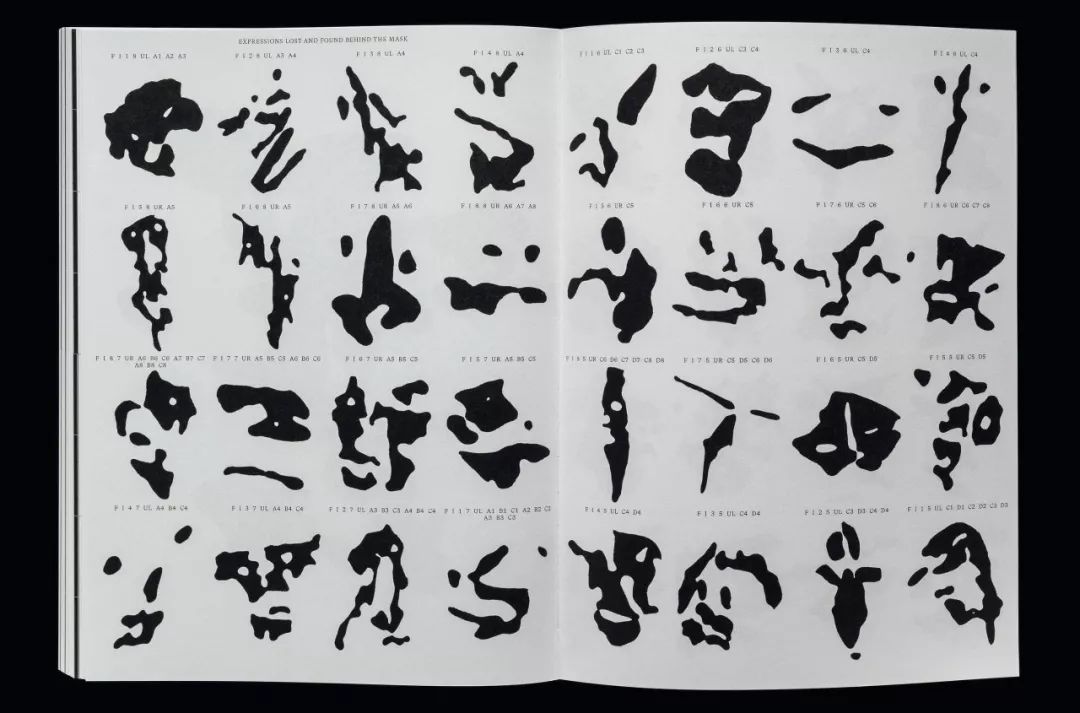 EXPRESSIONS LOST AND FOUND BEHIND THE MASK
F 1 1 8 UL A1 A2 A3
F 1 2 8 UL A3 A4
F 1 3 8 UL A4
F 1 4 8 UL A4
F 1 1 6 UL C1 C2 C3
F 1 2 6 UL C3 C4
F 1 3 6 UL C4
F 1 4 6 UL C4
F 1 5 8 UR A5
F 1 6 8 UR A5
F 1 7 8 UR A5 A6
F 1 8 8 UR A6 A7 A8
F 1 5 6 UR C5
F 1 6 6 UR C5
F 1 7 6 UR C5 C6
F 1 8 6 UR C6 C7 C8
F 1 8 7 UR A6 B6 C6 A7 B7 C7
A8 B8 C8
F 1 7 7 UR A5 B5 C5 A6 B6 C6
F 1 6 7 UR A5 B5 C5
F 1 5 7 UR A5 B5 C5
F 1 8 5 UR C6 D6 C7 D7 C8 D8
F 1 7 5 UR C5 D5 C6 D6
F 1 6 5 UR C5 D5
F 1 5 5 UR C5 D5
F 1 4 7 UL A4 B4 C4
F 1 3 7 UL A4 B4 C4
F 1 2 7 UL A3 B3 C3 A4 B4 C4
F 1 1 7 UL A1 B1 C1 A2 B2 C2
A3 B3 C3
F 1 4 5 UL C4 D4
F 1 3 5 UL C4 D4
F 1 2 5 UL C3 D3 C4 D4
F 1 1 5 UL C1 D1 C2 D2 C3 D3